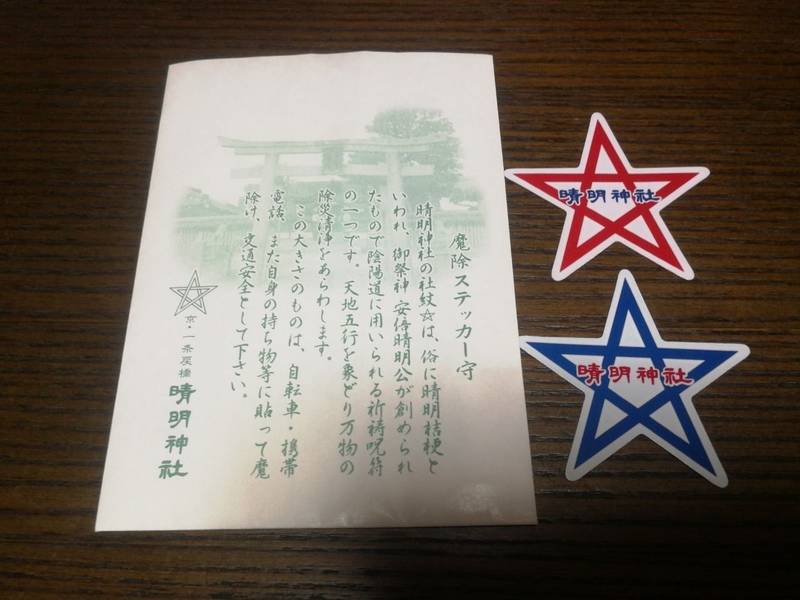 魔除ステッカー守
晴明神社の社紋☆は、俗に晴明桔梗と
いわれ、御祭神 安倍晴明公が創められ
たもので陰陽道に用いられる祈祷呪符
の一つです。天地五行を象どり万物の
除災清浄をあらわします。
この大きさのものは、自転車・携帯
電話、また自身の持ち物等に貼って魔
除け、交通安全として下さい。
京・一条戻橋
晴明神社
晴明神社
晴明神社